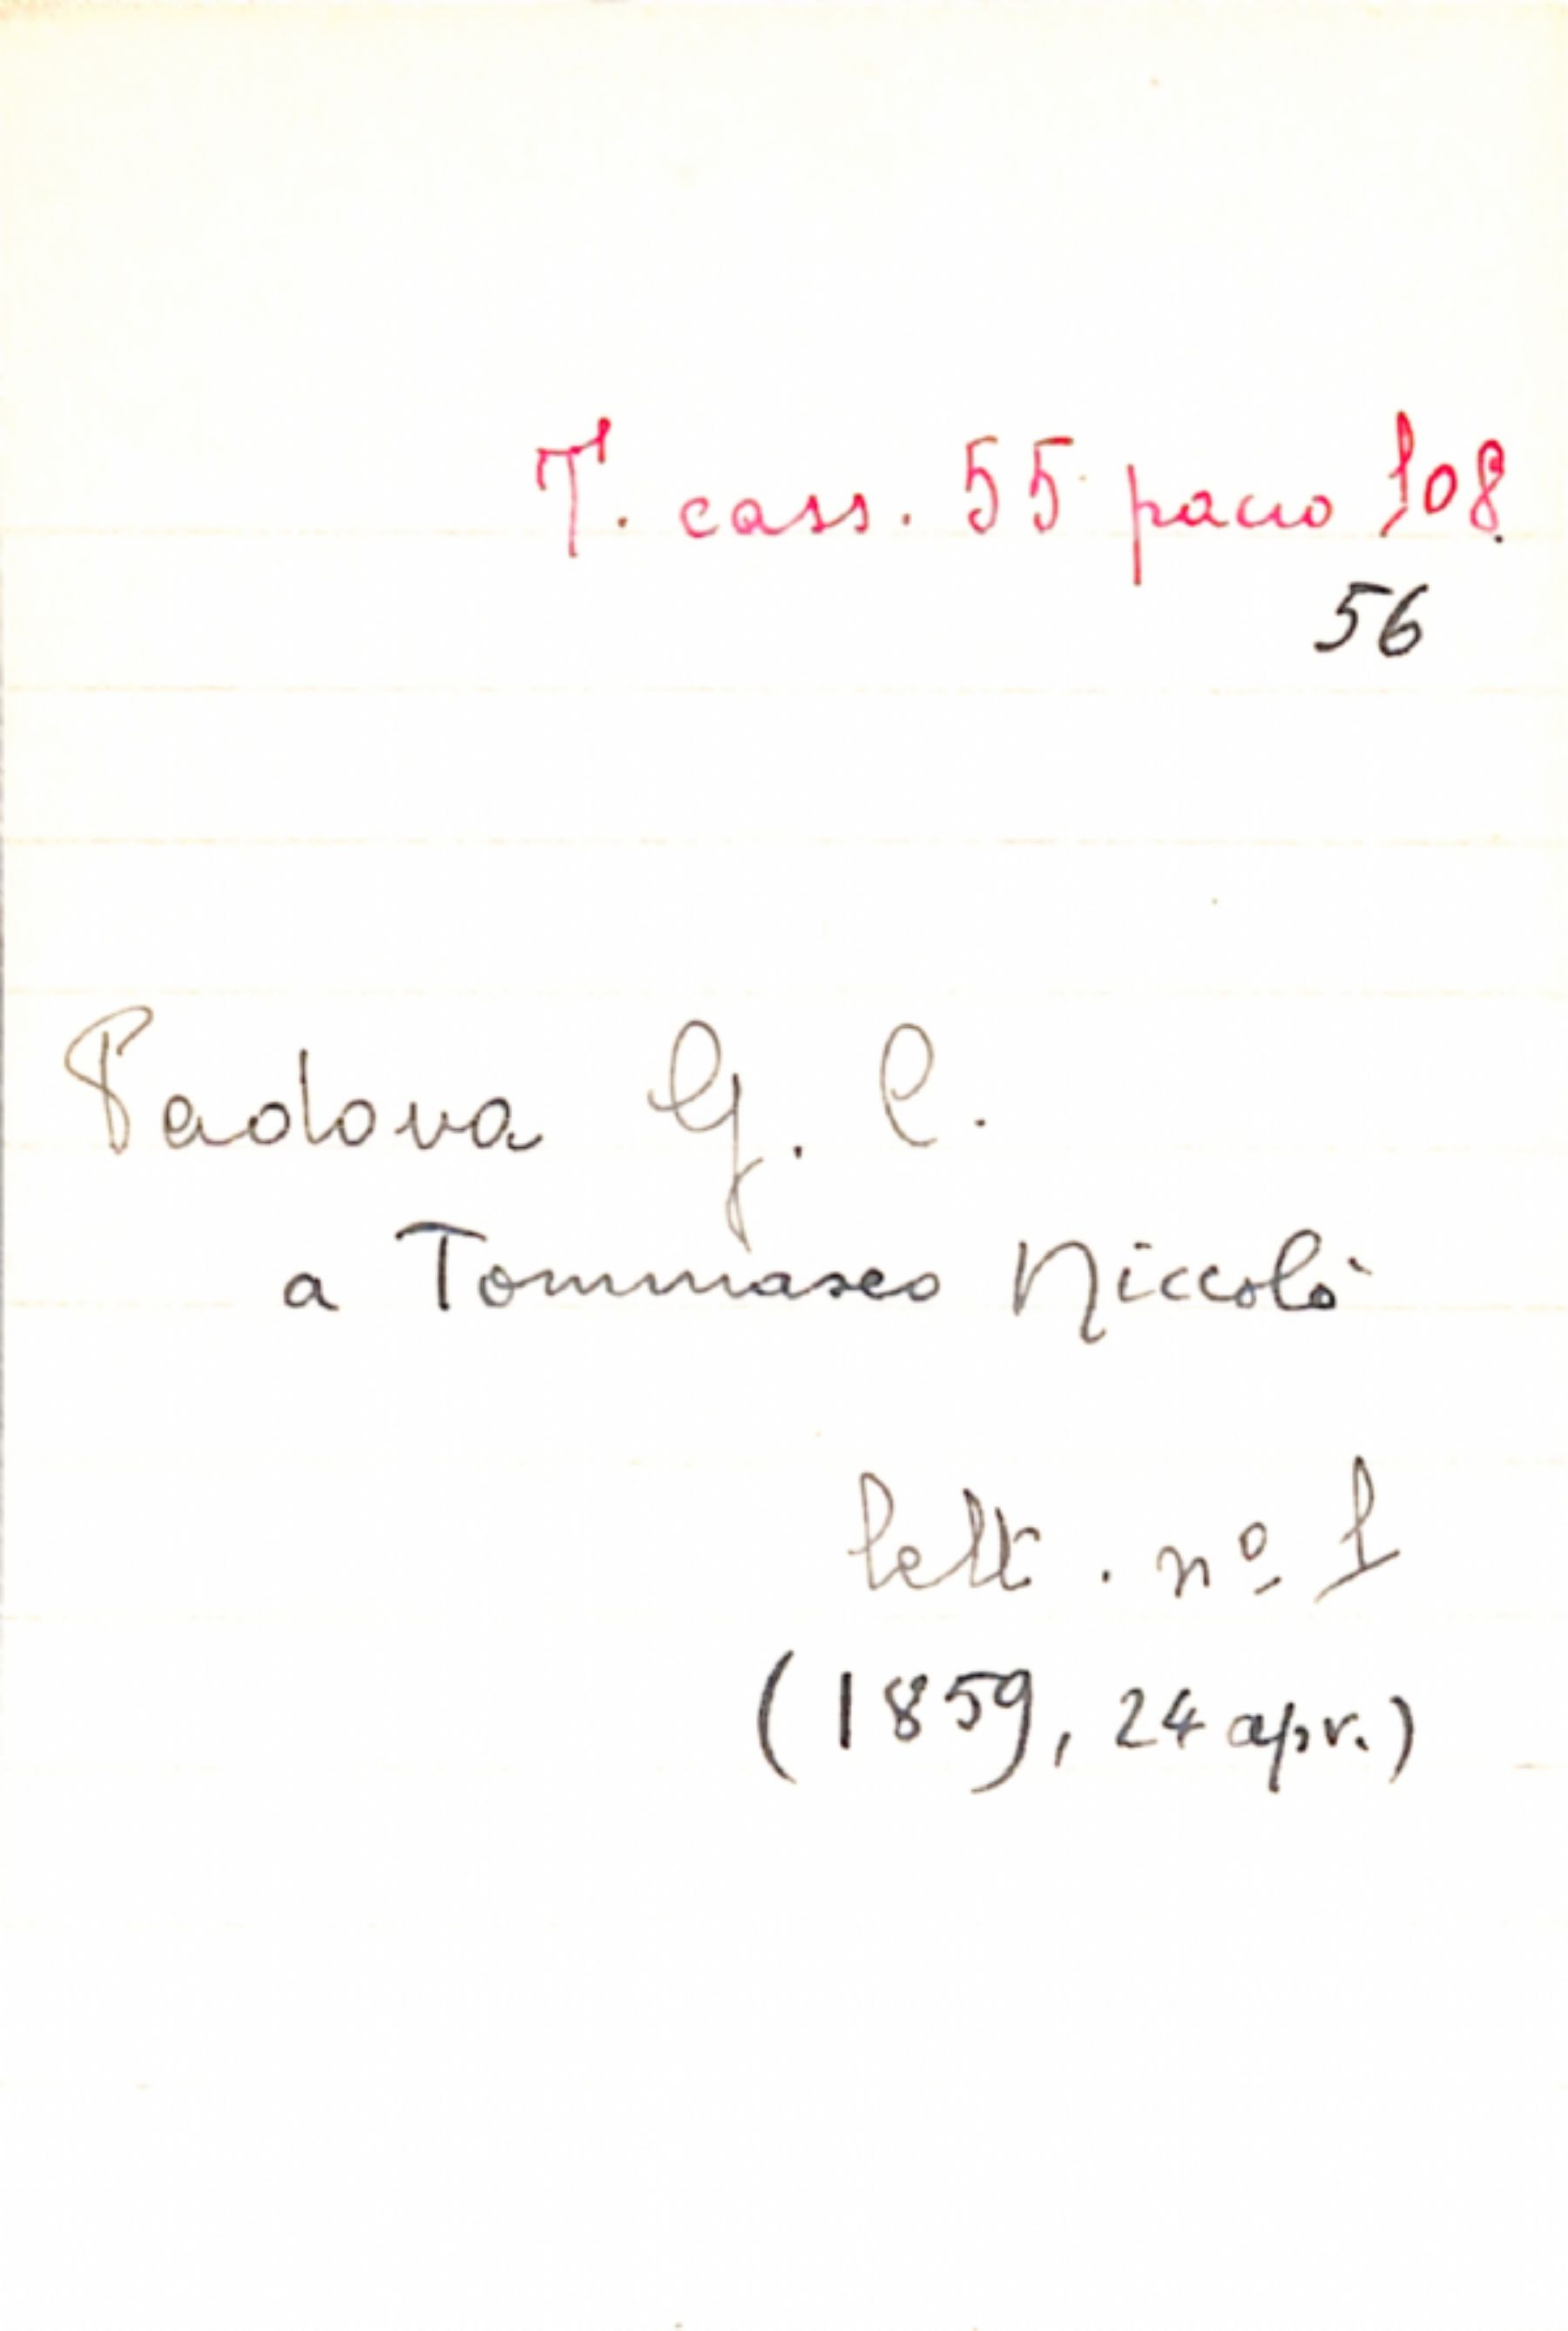 T. cass. 55 pacco 108.
56
Padova G. C.
a Tommaseo Niccolò
lett. nº 1
(1859, 24 apr.)